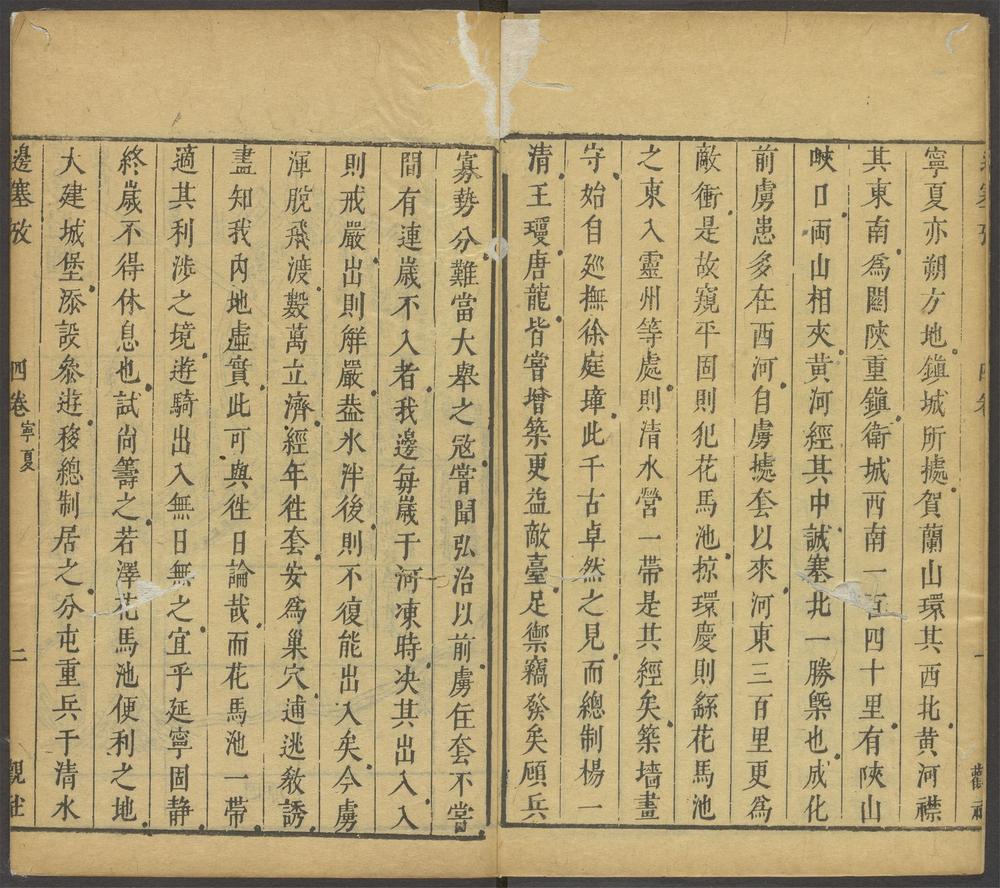 寧夏亦朔方地鎭城所㩀賀蘭山環其西北黄河襟
其東南爲關陜重鎭衛城西南一百四十里有陜山
峽口両山相夾黄河經其中誠塞北一勝槩也成化
前虜患多在西河自虜㩀套以來河東三百里更爲
敵衝是故窺平固則犯花馬池掠環慶則繇花馬池
之東入靈州等處則清水營一帶是其經矣築墻畫
守始自廵撫徐庭璋此千古卓然之見而總制楊一
清王瓊唐龍皆嘗增築更益敵臺足禦竊發矣頋兵
寡勢分難當大舉之冦嘗聞弘治以前虜在套不嘗
間有連歲不入者我邊每歲于河凍時决其出入入
則戒嚴出則觧嚴葢氷泮後則不復能出入矣今虜
渾脫飛渡數萬立濟經年徃套安爲巢穴逋逃敎誘
盡知我內地虛實此可與徃日論哉而花馬池一帶
適其利涉之境遊騎出入無日無之宜乎延寧固静
終歲不得休息也試尚籌之若澤花馬池便利之地
大建城堡添設叅遊移總制居之分屯重兵于清水
邊塞攷 四卷 寧夏 二